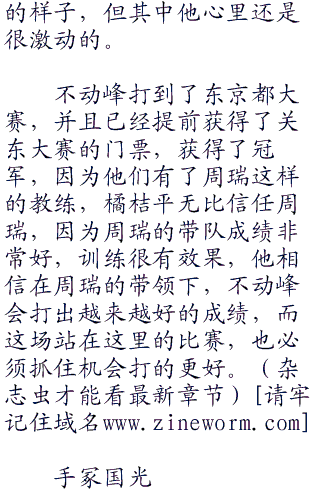 的样子，但其中他心里还是
很激动的。
不动峰打到了东京都大
赛，并且已经提前获得了关
东大赛的门票，获得了冠
军，因为他们有了周瑞这样
的教练，橘桔平无比信任周
瑞，因为周瑞的带队成绩非
常好，训练很有效果，他相
信在周瑞的带领下，不动峰
会打出越来越好的成绩，而
这场站在这里的比赛，也必
须抓住机会打的更好。（杂
志虫才能看最新章节）[请牢
记住域名www.zineworm.com]
手冢国光